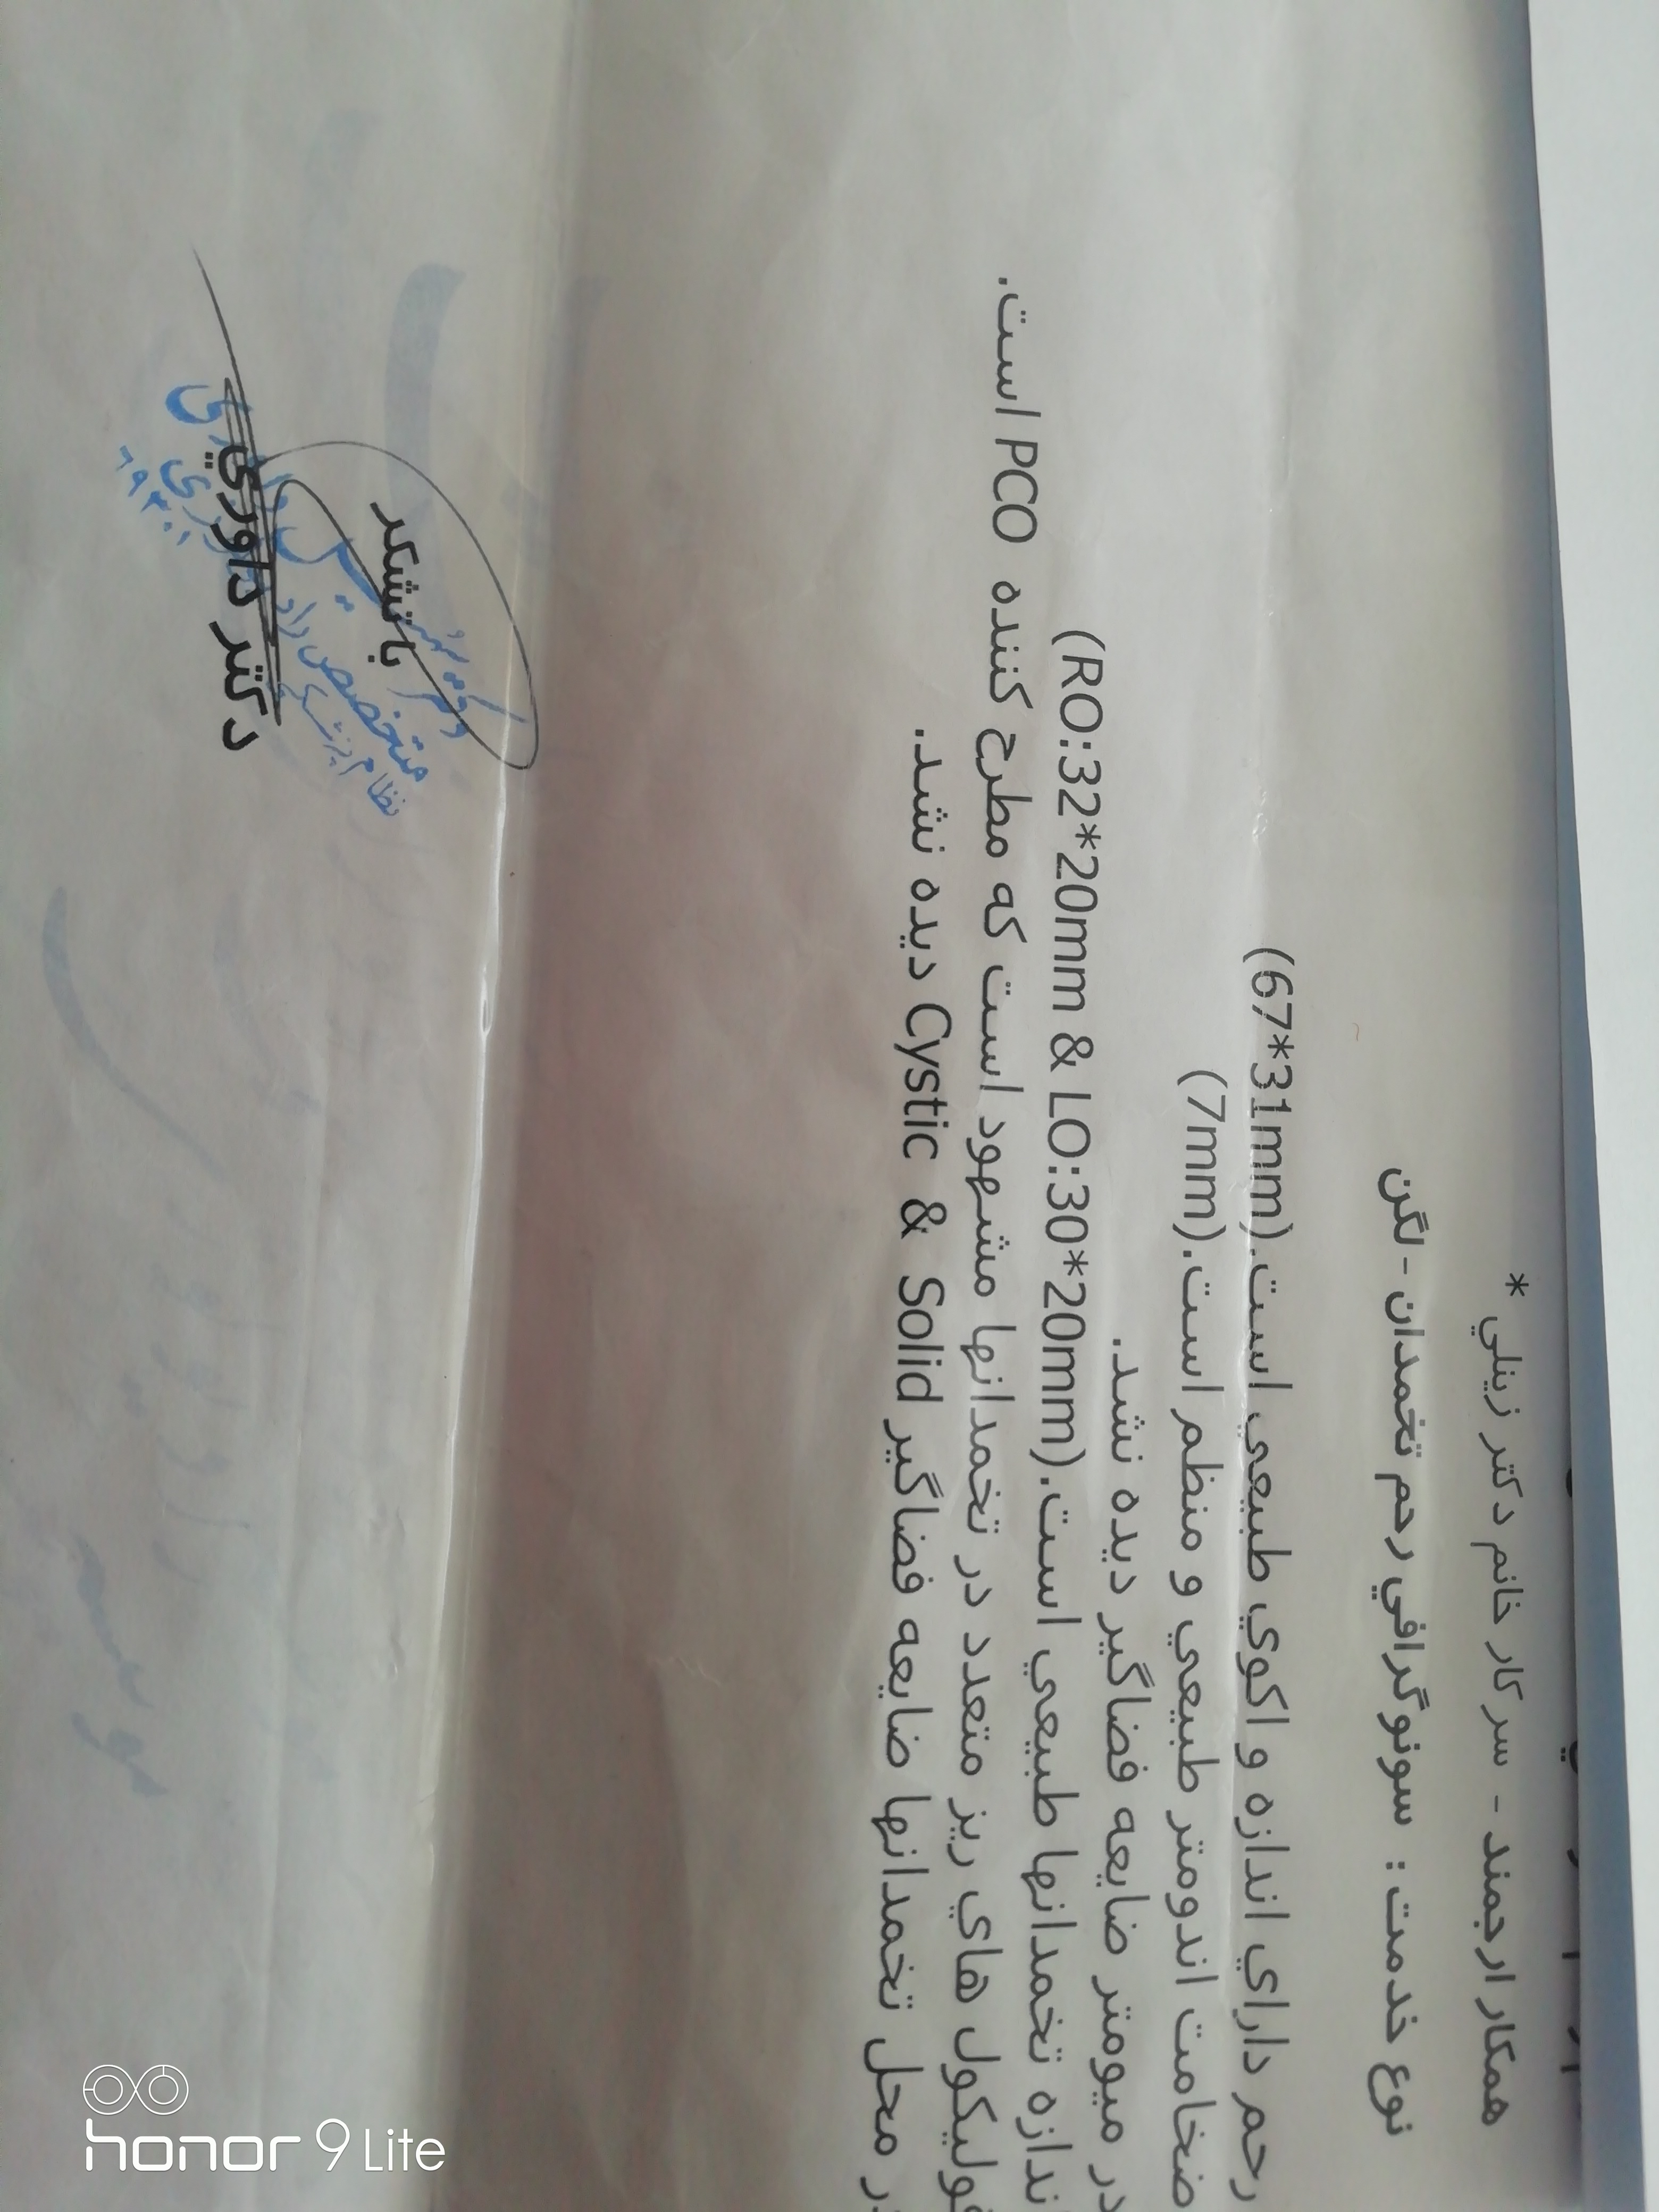 همكار ارجمند - سركار خانم دكتر زينلي *
نوع خدمت : سونوگرافي رحم تخمدان - لگن
رحم داراي اندازه و اكوي طبيعي است.(67*31mm)
ضخامت اندومتر طبيعي و منظم است.(7mm)
در ميومتر ضايعه فضاگير ديده نشد.
ندازه تخمدانها طبيعي است.(RO:32*20mm & LO:30*20mm)
فوليكول هاي ريز متعدد در تخمدانها مشهود است كه مطرح كننده PCO است.
در محل تخمدانها ضايعه فضاگير Cystic & Solid ديده نشد.
باتشكر
دكتر داوري
متخصص
نظام پزشكي
honor 9 Lite